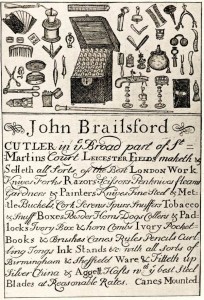 John Brailsford
CUTLER in yͤ Broad part of Sᵗ
Martins Court LEICESTER FIELDS maketh &
Selleth all Sorts of the Best LONDON Work
Knives Forks Razors Scissors Penknives fleams
Gardners & Painters Knives Fine Steel & Met-
tle Buckels Cork Screws Spurs Snuffers Tobacco
& Snuff Boxes Powder Horns Dogs Collers & Pad-
locks Ivory Box & horn Combs Ivory Pocket-
Books & Brushes Canes Rules Pencils Curl
ing Tongs Ink Stands &c with all sorts of
Birmingham & Sheffield Ware & Fitteth up
Silver China & Aggett Hafts wᵗʰ yͤ best Steel
Blades at Reasonable Rates. Canes Mounted